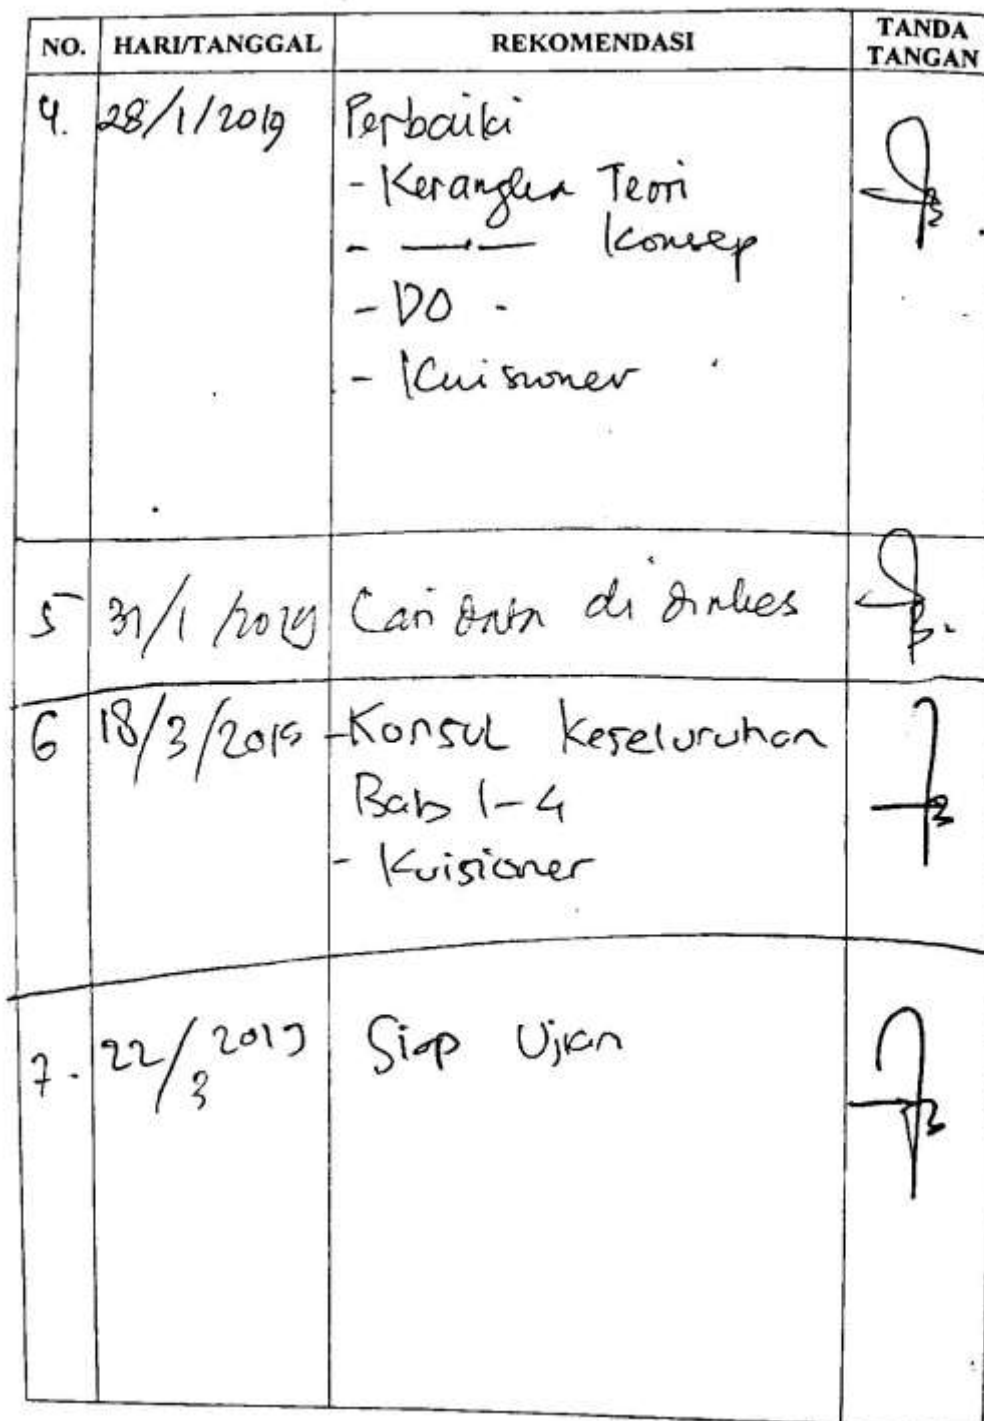 NO. HARI/TANGGAL REKOMENDASI TANDA TANGAN
4. 28/1/2019 Perbaiki
- Kerangka Teori
- —"— Konsep
- DO -
- Kuisioner
5 31/1/2019 Cari data di dinkes
6 18/3/2019 - Konsul Keseluruhan
Bab 1-4
- Kuisioner
7. 22/3 2019 Siap Ujian